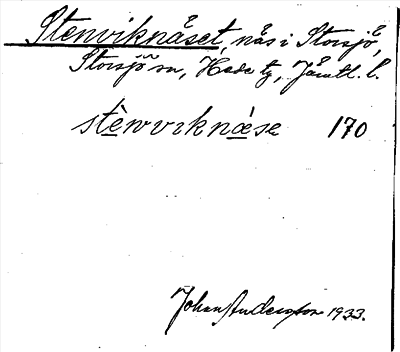 Stenviknäset, näs i Storsjö,
Storsjö sn, Hede tg, Jämtl. l.
stènviknäse 170
Johan Andersson 1933.